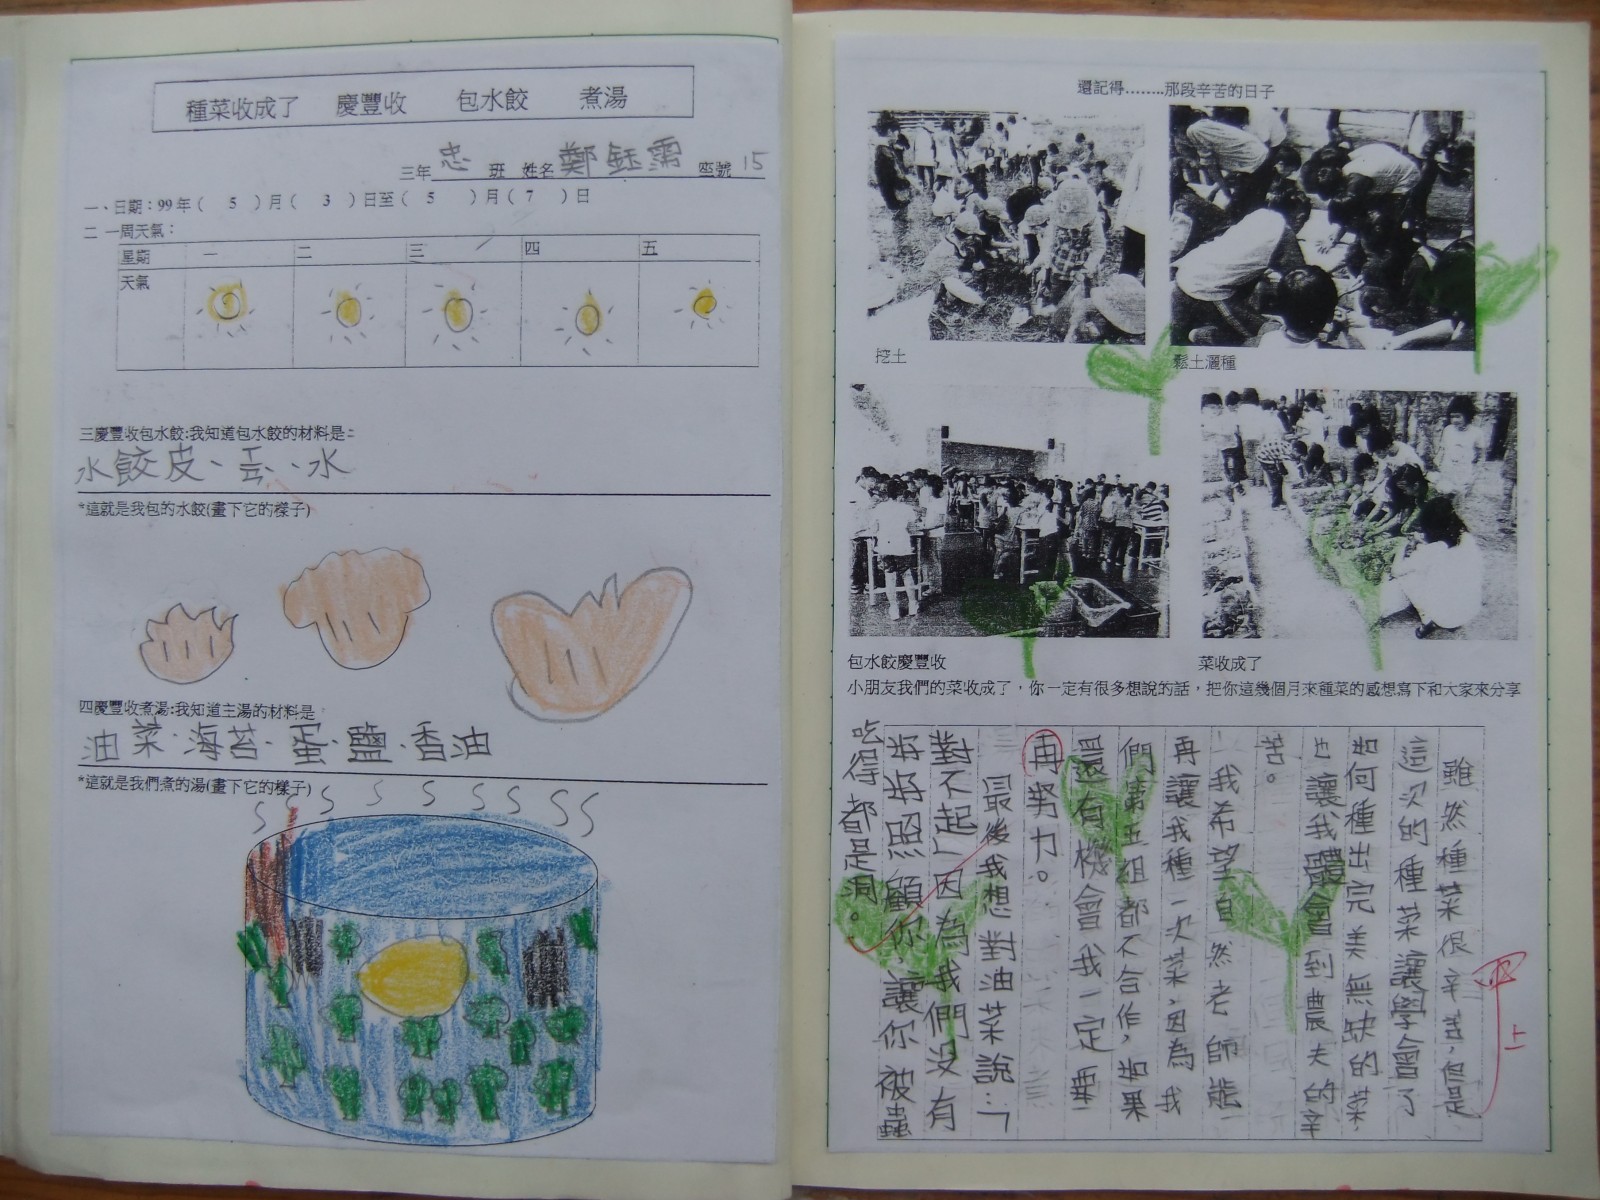 種菜收成了 慶豐收 包水餃 煮湯
三年 忠 班 姓名 鄭鈺霈 座號 15
一、日期：99年( 5 )月( 3 )日至( 5 )月( 7 )日
二 一周天氣：
星期 一 二 三 四 五
天氣
三慶豐收包水餃:我知道包水餃的材料是:
水餃皮、蛋、水
*這就是我包的水餃(畫下它的樣子)
四慶豐收煮湯:我知道主湯的材料是
油菜、海苔、蛋、鹽、香油
*這就是我們煮的湯(畫下它的樣子)
還記得........那段辛苦的日子
挖土
鬆土灑種
包水餃慶豐收
菜收成了
小朋友我們的菜收成了，你一定有很多想說的話，把你這幾個月來種菜的感想寫下和大家來分享
雖然種菜很辛苦，但是
這次的種菜讓學會了
如何種出完美無缺的菜
也讓我體會到農夫的辛
苦。
我希望自然老師能
再讓我種一次菜，因為我
們第五組都不合作，如果
還有機會我一定要
再努力。
最後我想對油菜說：「
對不起」因為我們沒有
好好照顧你，讓你被蟲
吃得都是洞。
上